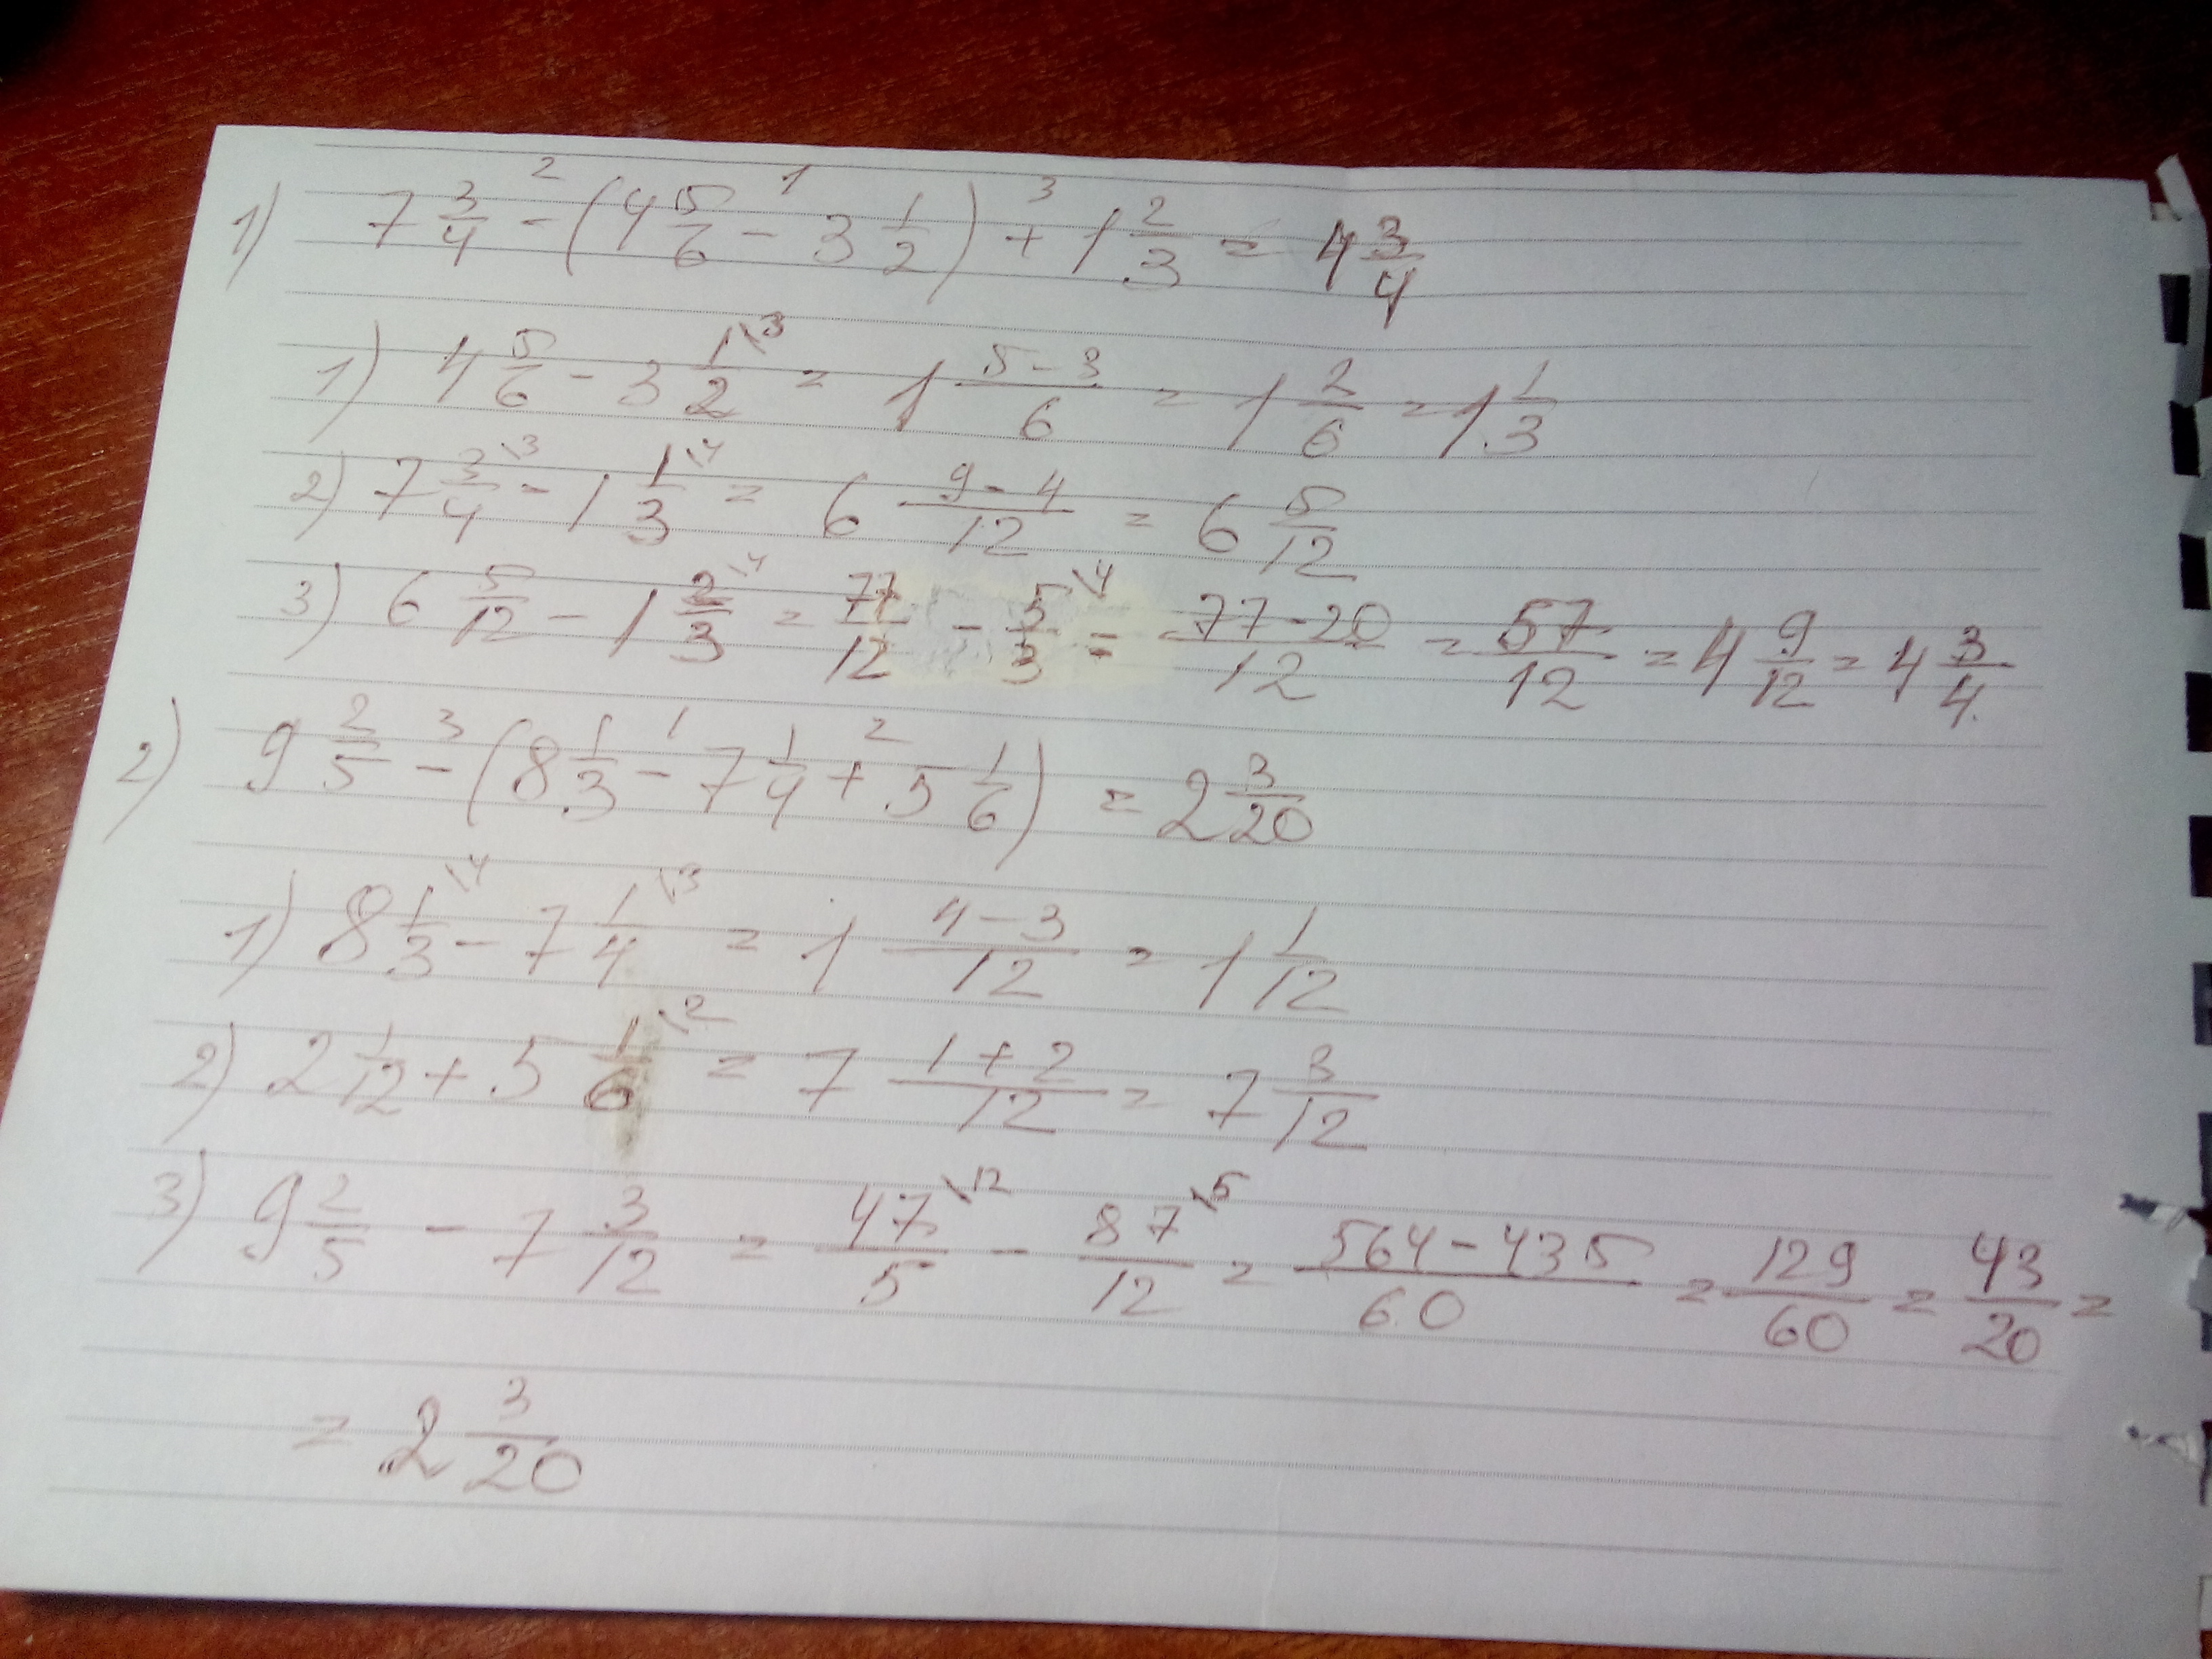 1) 7 3/4 - (4 5/6 - 3 1/2) + 1 2/3 = 4 3/4
1) 4 5/6 - 3 1\3/2 = 1 5-3/6 = 1 2/6 = 1 1/3
2) 7 3\3/4 - 1 1\4/3 = 6 9-4/12 = 6 5/12
3) 6 5/12 - 1 2\4/3 = 77/12 - 5\4/3 = 77-20/12 = 57/12 = 4 9/12 = 4 3/4
2) 9 2/5 - (8 1/3 - 7 1/4 + 5 1/6) = 2 3/20
1) 8 1\4/3 - 7 1\3/4 = 1 4-3/12 = 1 1/12
2) 2 1/12 + 5 1\2/6 = 7 1+2/12 = 7 3/12
3) 9 2/5 - 7 3/12 = 47\12/5 - 87\5/12 = 564-435/60 = 129/60 = 43/20 =
= 2 3/20